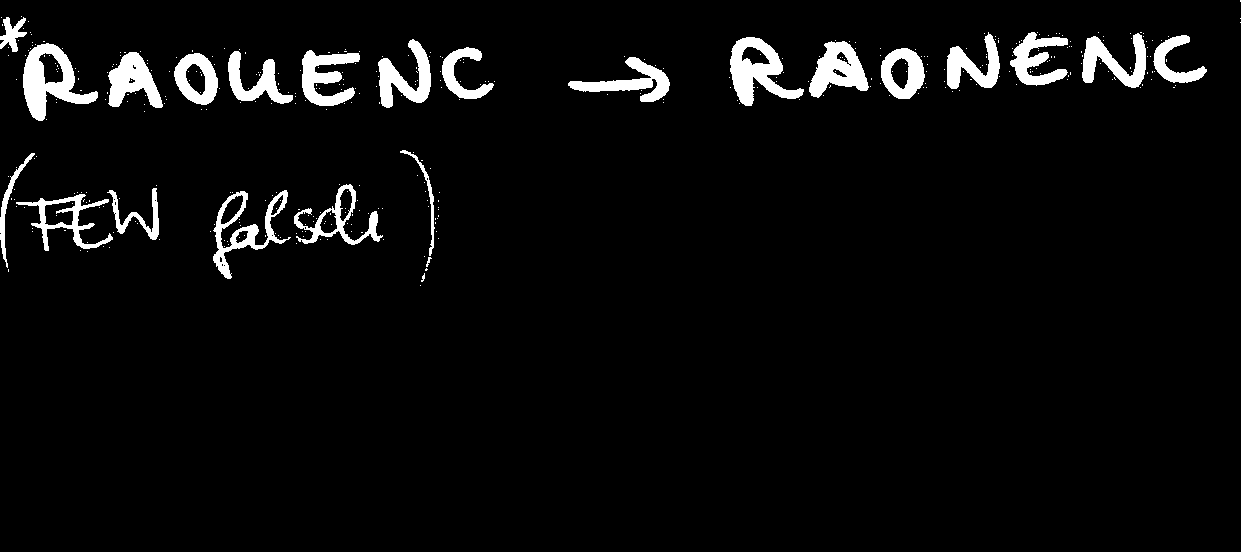 *RAOUENC → RAONENC
(FEW falsch)